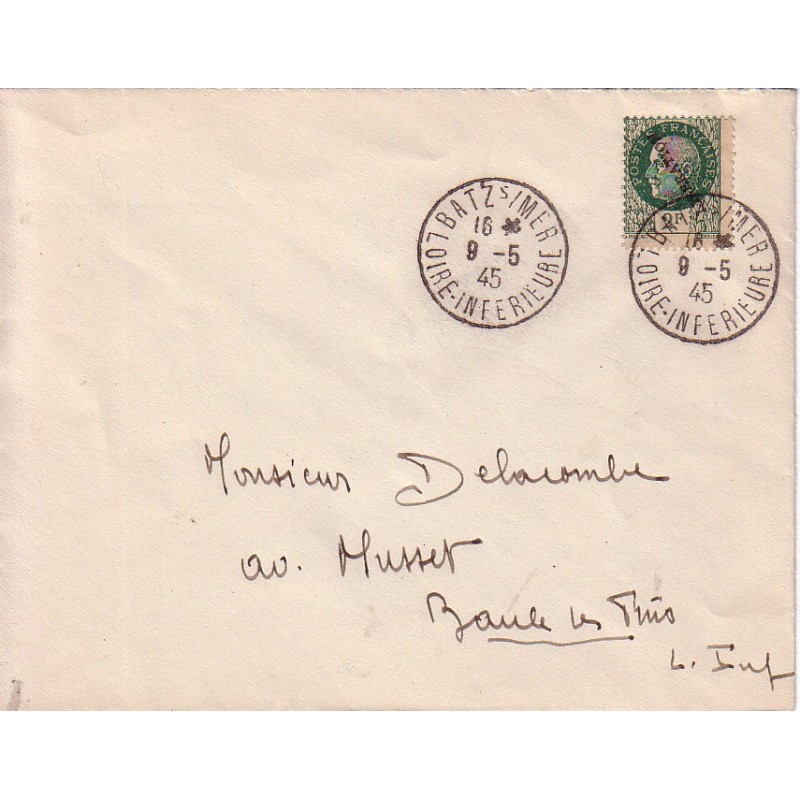 POSTES FRANÇAISES
2F
BATZ S/MER
16 *
9 -5
45
LOIRE-INFERIEURE
BATZ S/MER
16 *
9 -5
45
LOIRE-INFERIEURE
Monsieur Delacombe
av. Musset
Baule les Pins
L. Inf